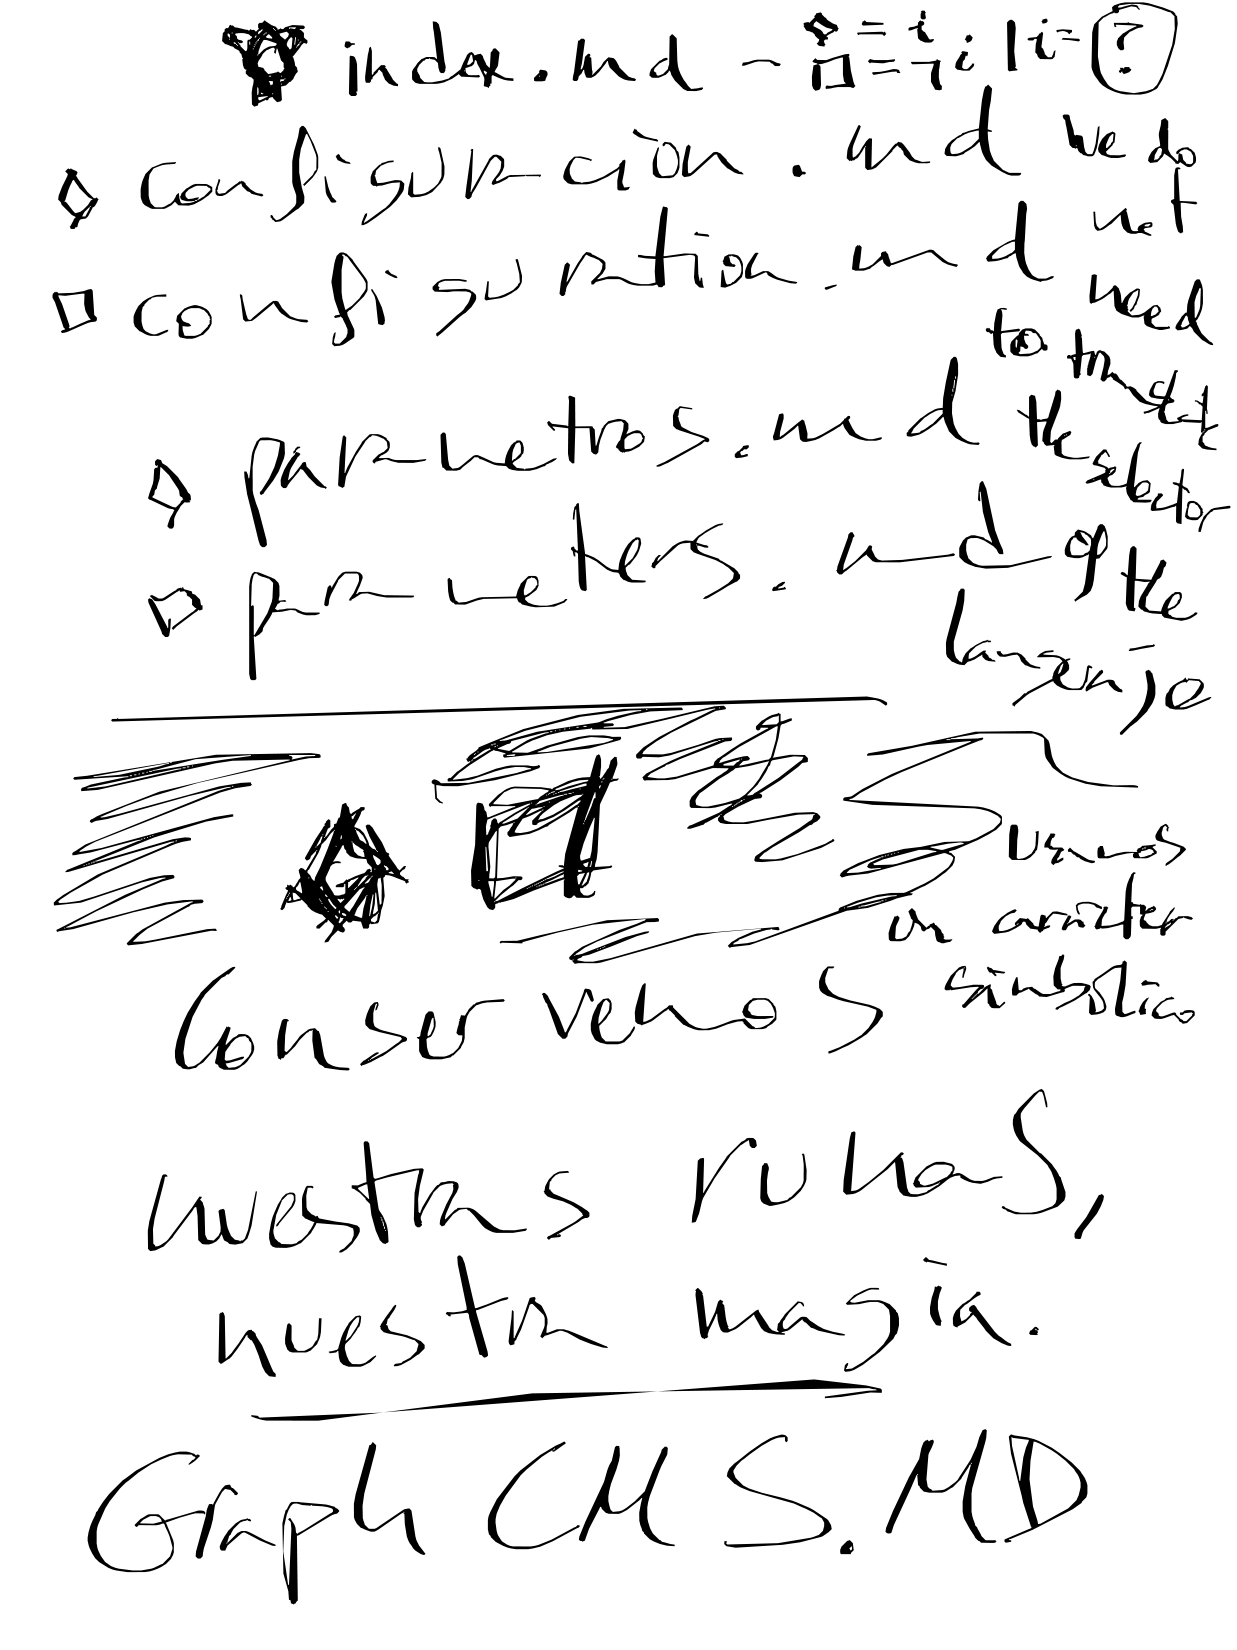 index.md - ◇ = i
□ = ¬i | i = ?
◇ configuración.md
□ configuration.md
◇ parametros.md
□ parameters.md
we do
not
need
to translate
the selector
of the
languaje
usamos
un carácter
simbólico
Conservemos
nuestras runas,
nuestra magia.
Graph CMS.MD